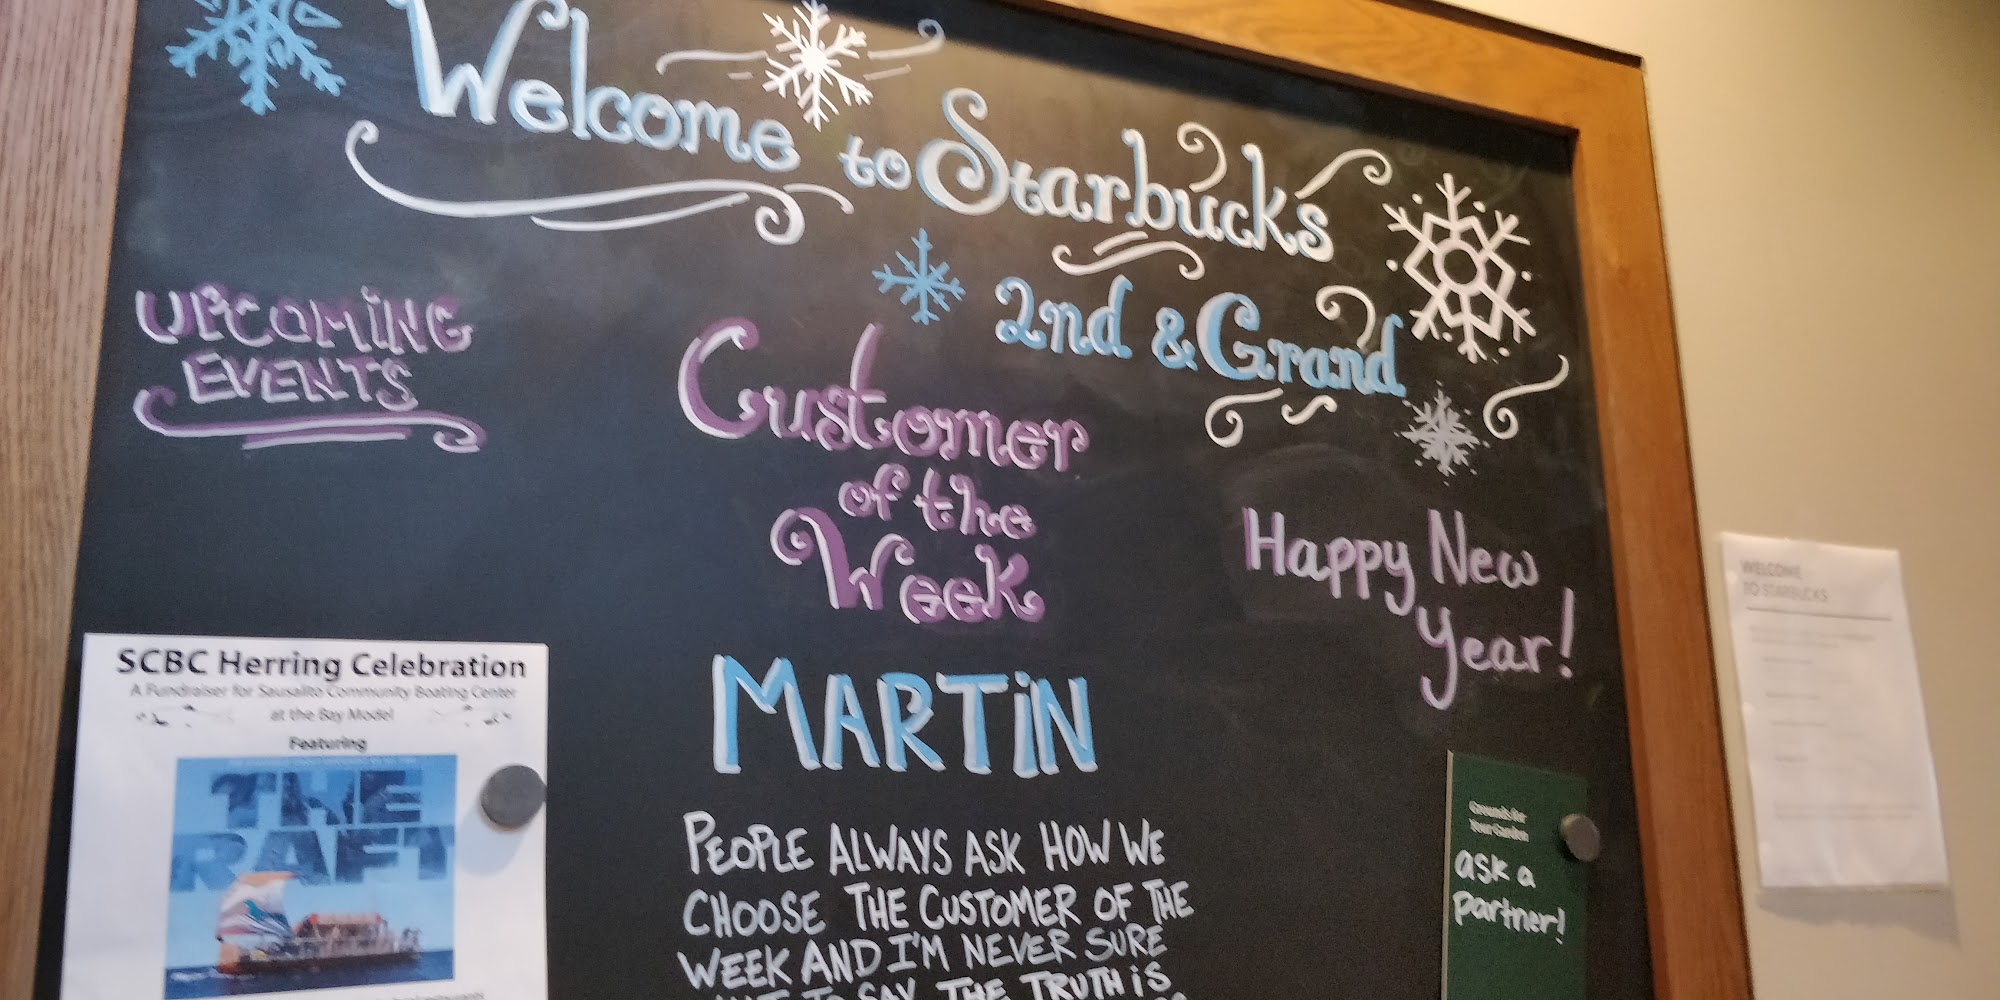 Welcome to Starbucks
2nd & Grand
UPCOMING
EVENTS
Customer
of the
Week
MARTIN
PEOPLE ALWAYS ASK HOW WE
CHOOSE THE CUSTOMER OF THE
WEEK AND I'M NEVER SURE
TO SAY. THE TRUTH IS
Happy New
Year!
SCBC Herring Celebration
A Fundraiser for Sausalito Community Boating Center
at the Bay Model
Featuring
THE
RAFT
Grounds for
Your Garden
ask a
partner!
WELCOME
TO STARBUCKS